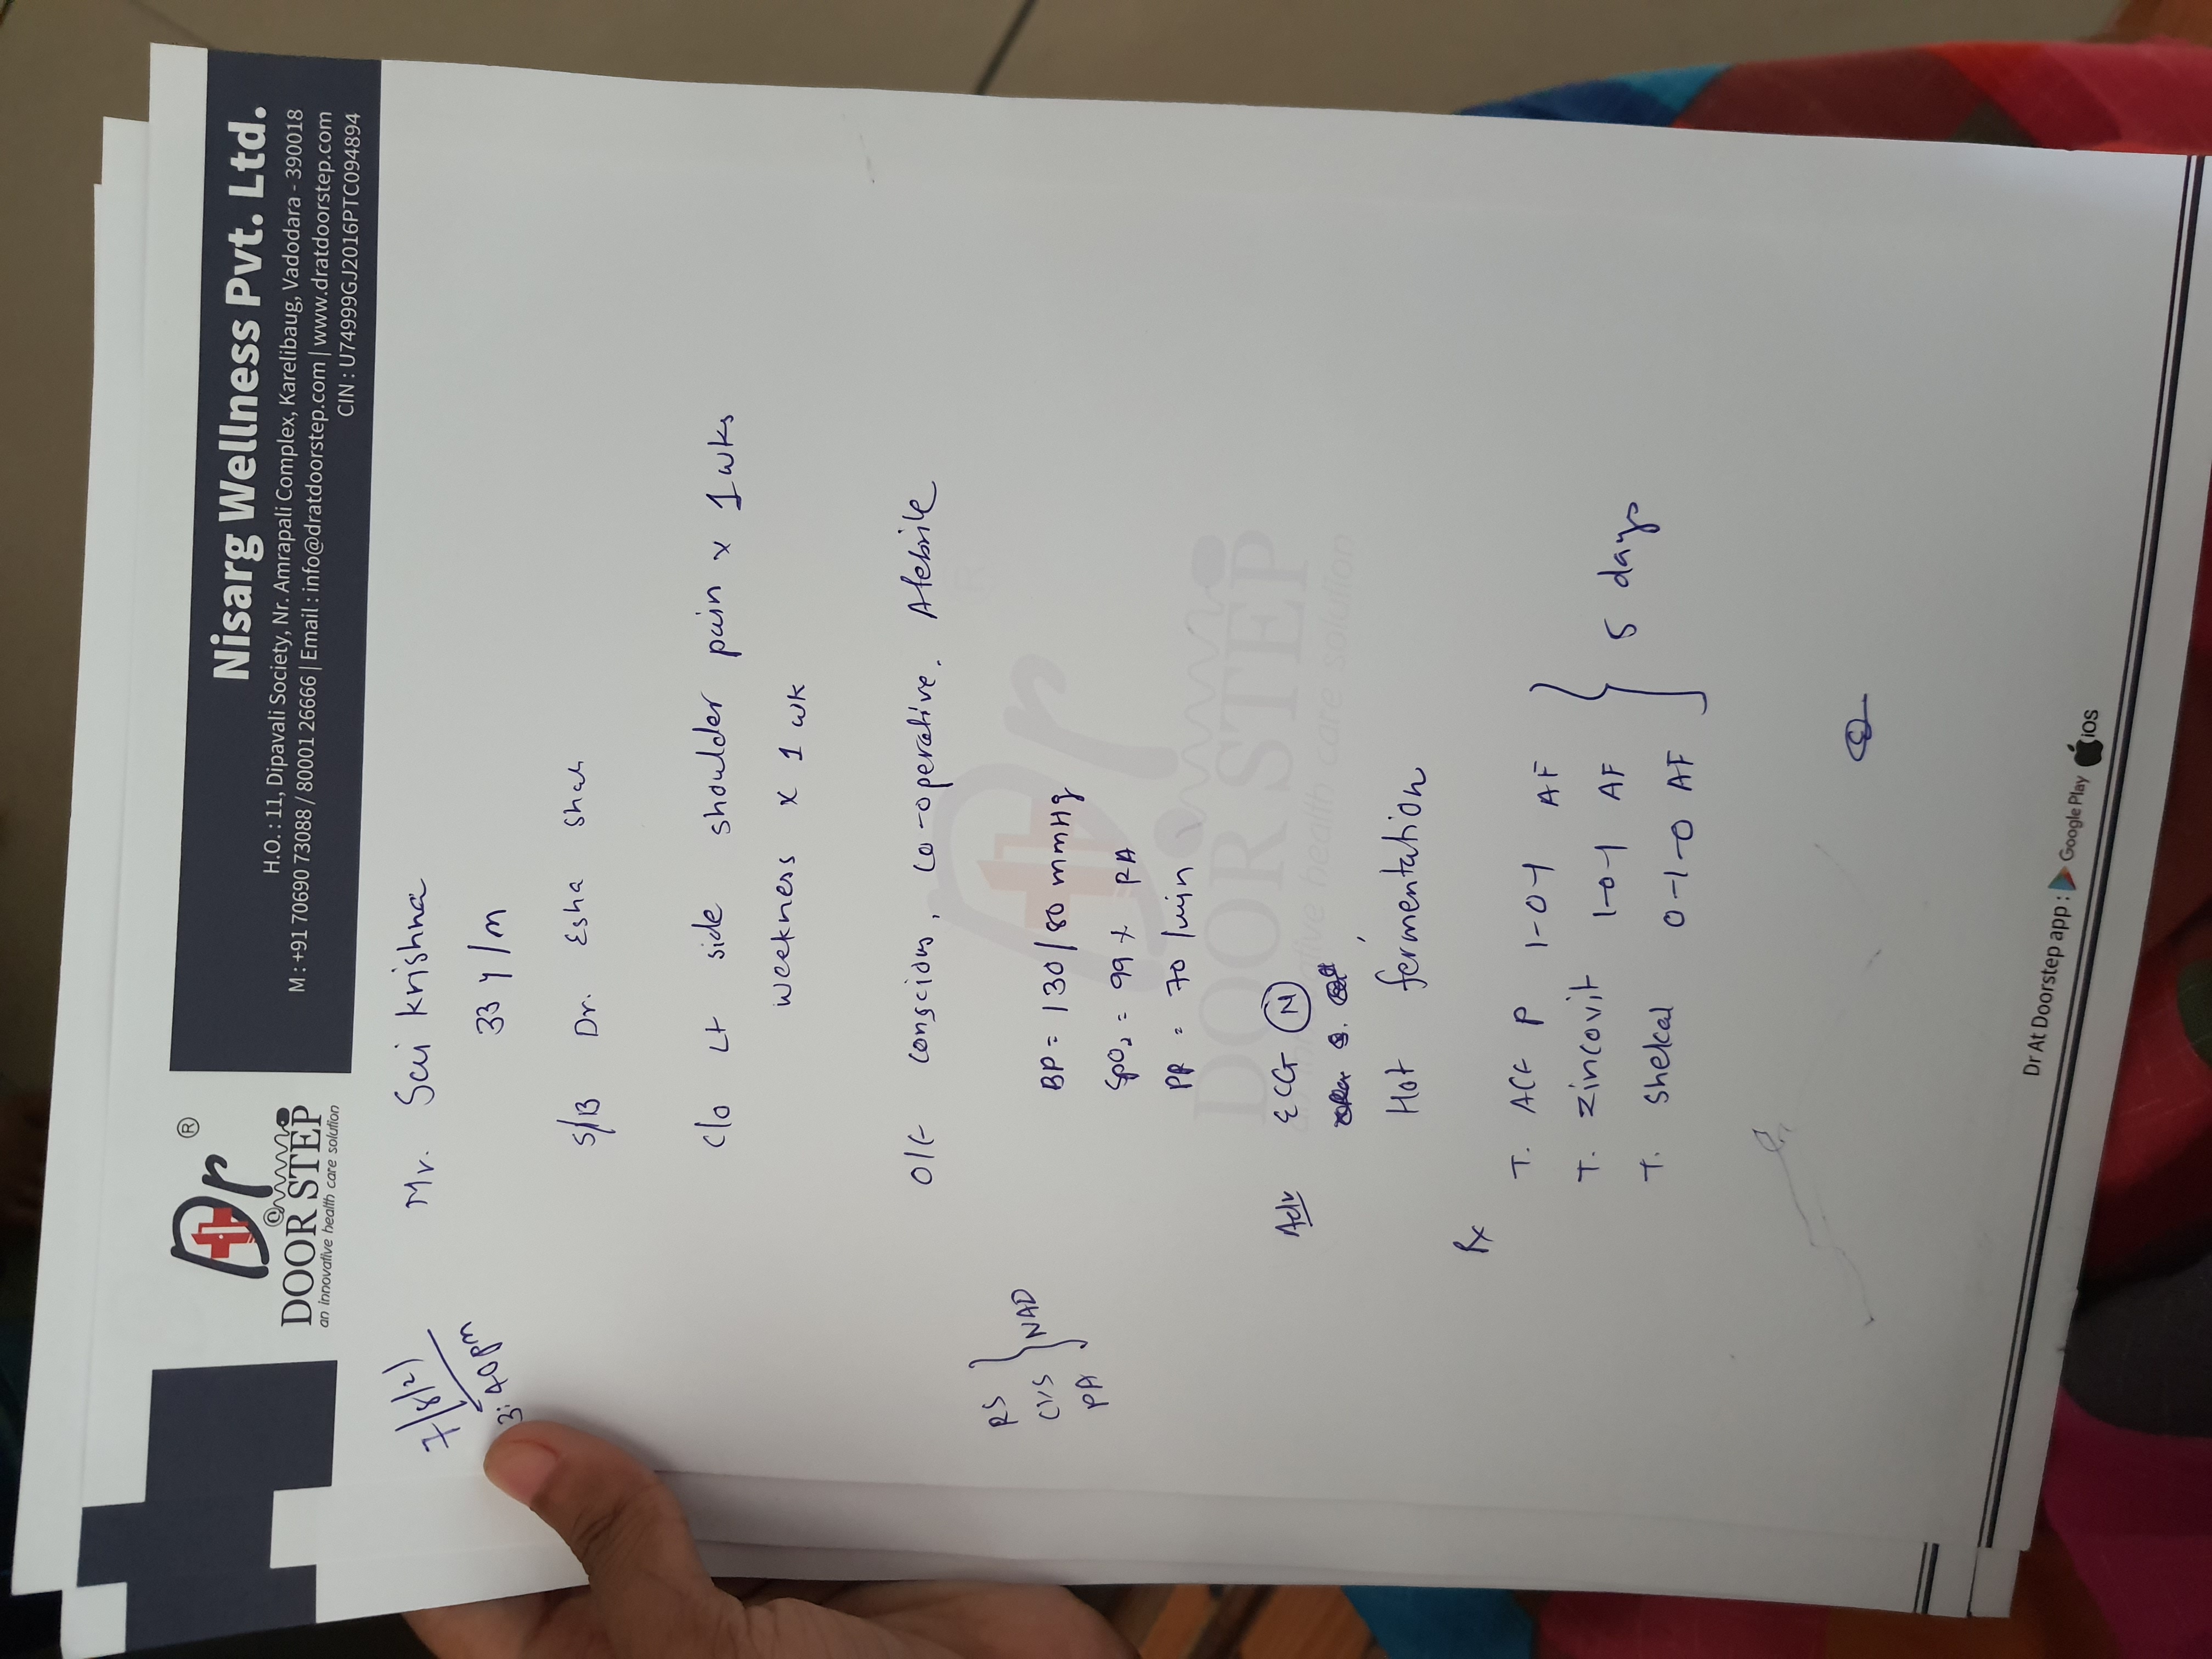 Dr ®
@
DOOR STEP
an innovative health care solution
Nisarg Wellness Pvt. Ltd.
H.O. : 11, Dipavali Society, Nr. Amrapali Complex, Karelibaug, Vadodara - 390018
M : +91 70690 73088 / 80001 26666 | Email : info@dratdoorstep.com | www.dratdoorstep.com
CIN : U74999GJ2016PTC094894
7/8/21
3:40pm
Mr. Sai krishna
33 y/m
S/B Dr. Esha Shah
C/o Lt side shoulder pain x 1 wks
weekness x 1 wk
O/E conscious, co-operative. Afebrile
RS
CVS
PA
NAD
BP = 130/80 mmHg
SpO2 = 99 % RA
PR = 70 /min
Dr ®
DOOR STEP
an innovative health care solution
Adv ECG N
Hot fermentation
Rx
T. ACE P 1-0-1 AF
T. Zincovit 1-0-1 AF
T. Shelcal 0-1-0 AF
5 days
Dr At Doorstep app : Google Play iOS